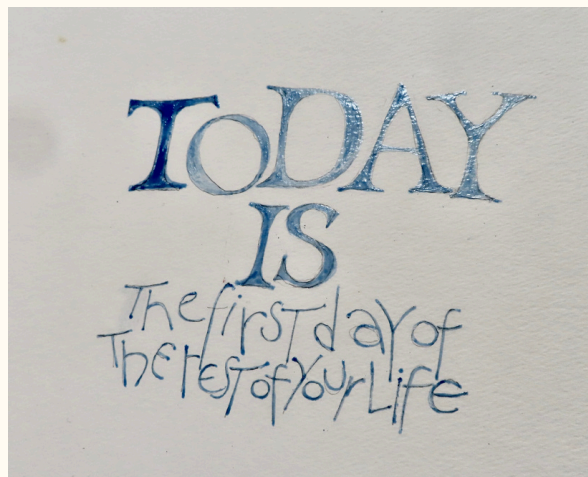 TODAY
IS
The firST day of
ThE rEST of YoUr Life